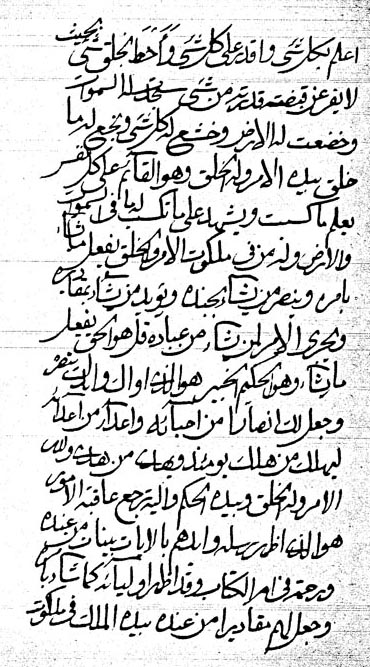 اعلم بكل شي واقدر على كل شي واحط الخلق بحيث
لا يفر عن قبضته قدرته من شي سجد له السموات
وخضعت له الارض وخشع له كل شي وتخضع له ما
خلق بيده الامر وله الخلق وهو القائم على كل نفس
يعلم ما كسبت ويشهد على ما تكسب له ما في السموات
والارض وله من في ملكوت الامر والخلق يفعل ما يشاء
بامره وينصر من يشاء بجنده ويؤيد من يشاء
ويجري الامر لمن يشاء من عباده قل هو الحق يفعل
ما يشاء وهو الحكيم الخبير هو الذي اواك وايدك بنصره
وجعل لك انصارا من احبائه واعداء من اعدائه
ليهلك من هلك يومئذ ويهدي من هدى وله
الامر وله الخلق وبيده الحكم واليه ترجع عاقبة الامور
هو الذي اظهر رسله وايدهم بالايات بينات من عنده
ورحمة في ام الكتاب وقد اظهر اوليائه كما شاء
وجعل لهم مقاديرا من عنده بيده الملك في ملكوت